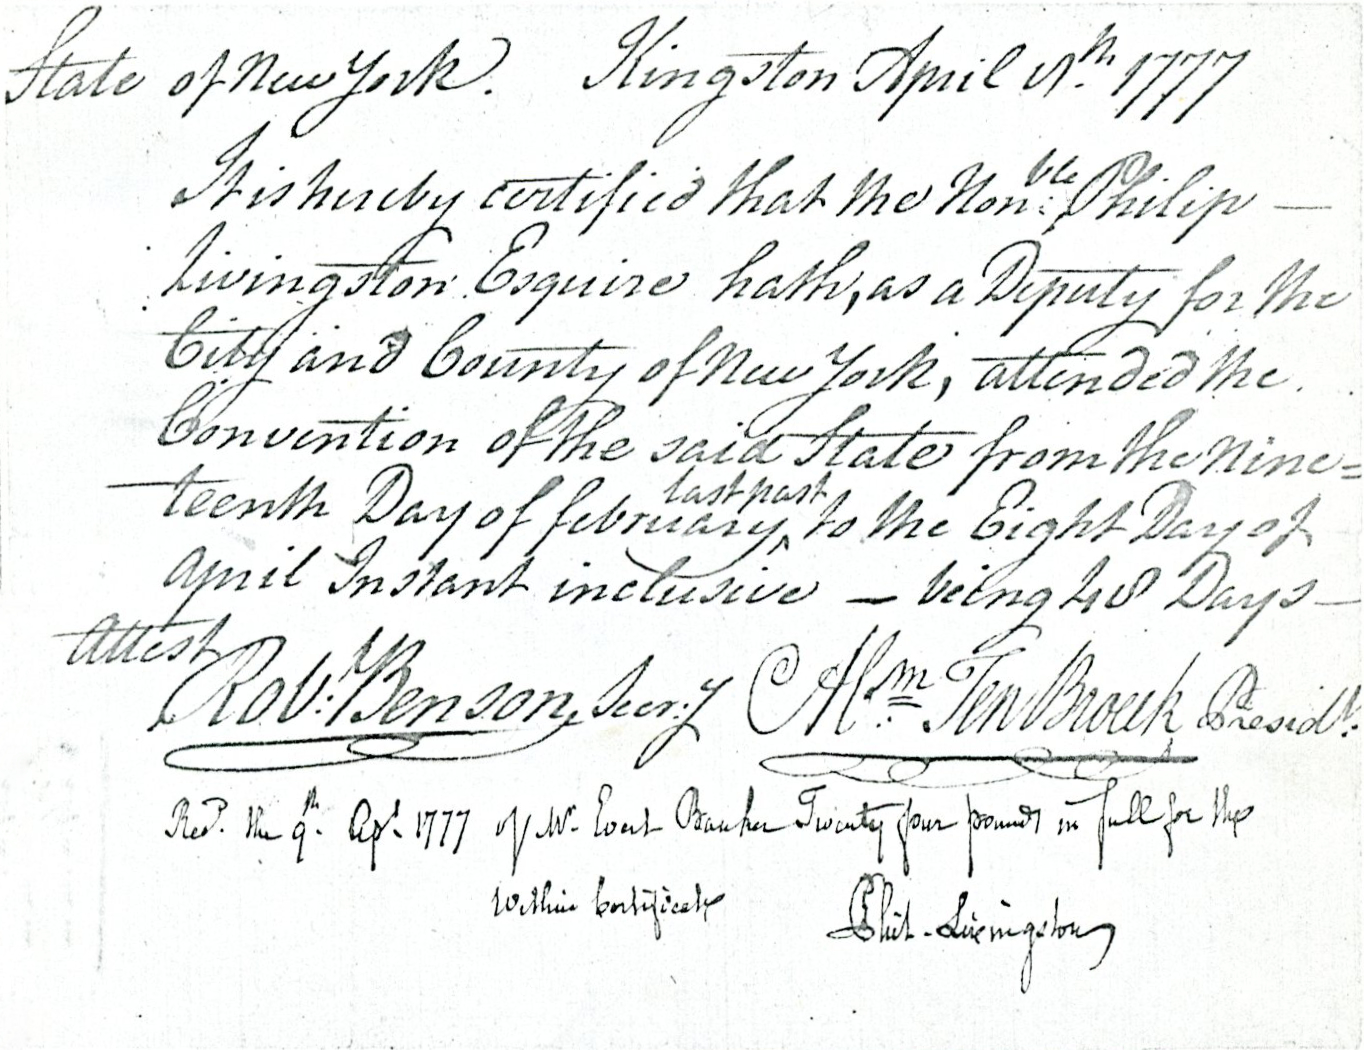 State of New York. Kingston April 8th. 1777
It is hereby certified that the Honble: Philip —
Livingston Esquire hath, as a Deputy for the
City and County of New York, attended the
Convention of the said State from the Nine=
teenth Day of february, last past to the Eight Day of
April Instant inclusive — being 48 Days —
Attest
Robt. Benson, Secry. Abm. Ten Broeck Presidt.
Recd. the 9th. Apl. 1777 of Mr. Evert Bancker Twenty four pounds in full for the
within Certificate
Phil. Livingston